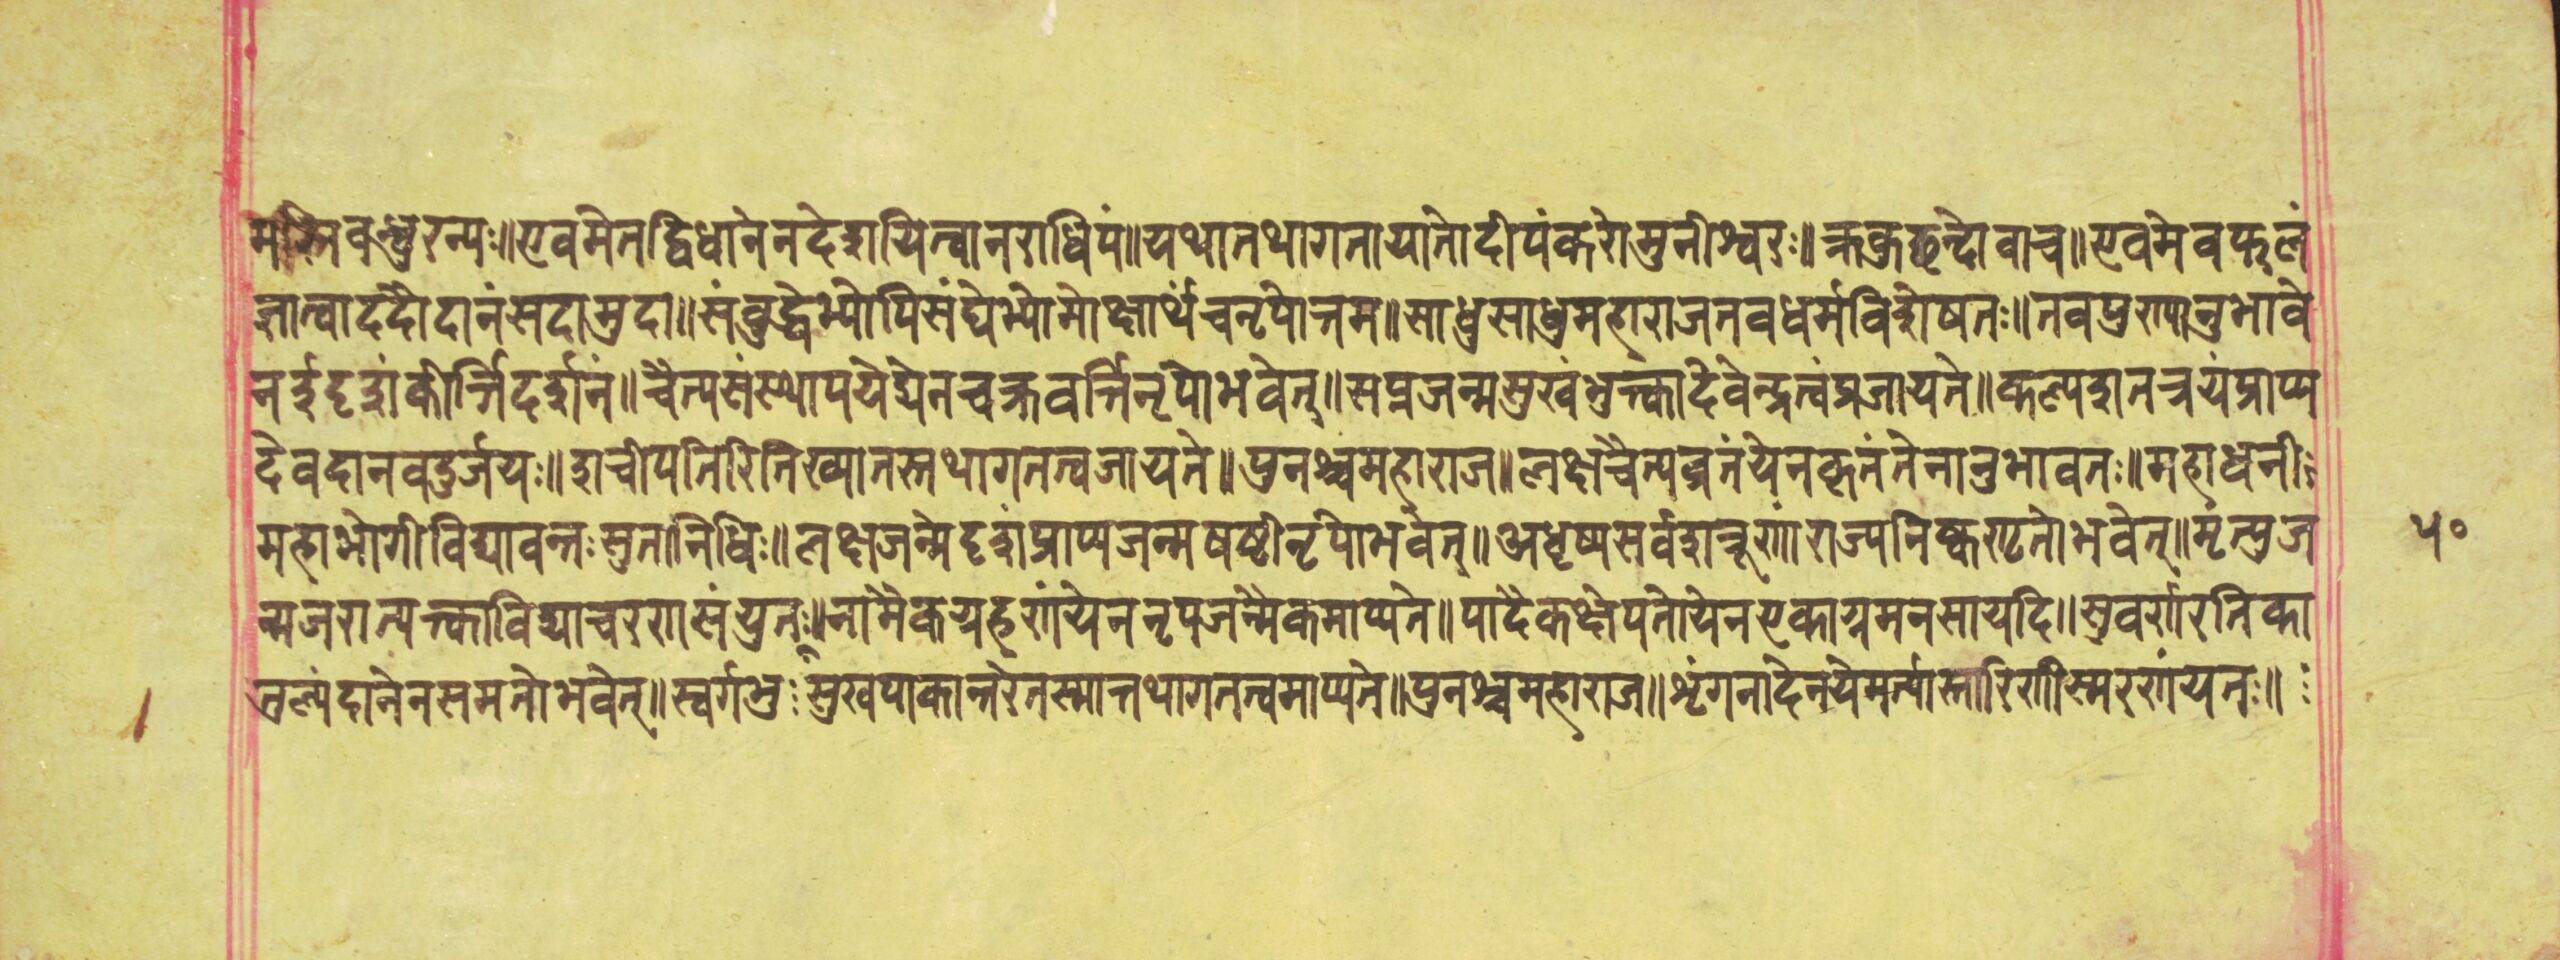 मस्तिवन्धुरन्यः॥एवमेतद्विधानेनदेशयित्वानराधिपं॥यथातथागतायातोदीपंकरोमुनीश्वरः॥क्रकुछन्दोवाच॥एवमेवफलं
ज्ञात्वाददौदानंसदामुदा॥संवुद्धेभ्योपिसंघेभ्योमोक्षार्थंचनृपोत्तम॥साधुसाधुमहाराजतवधर्मविशेषतः॥तवपुराणानुभावे
नईदृशंकीर्त्तिदर्शानं॥चैत्यसंस्थापयेद्येनचक्रवर्त्तिनृपोभवेत्॥सप्तजन्मसुखंभुक्त्वादेवेन्द्रत्वंप्रजायते॥कल्पशतत्रयंप्राप्य
देवदानवदुर्जयः॥शचीपतिरितिख्यातस्तथागतत्वजायते॥पुनश्चमहाराज॥लक्षचैत्यव्रतंयेनकृतंतेनानुभावतः॥महाधनी
महाभोगीविद्यावन्तःसुतानिधिः॥लक्षजन्मेदृशंप्राप्यजन्मषष्टीनृपोभवेत्॥अधृष्यसर्वशत्रूणांराज्यनिष्कण्टतोभवेत्॥मृंत्युज
न्मजरात्यक्त्वाविद्याचरणसंयुतः॥नामैकग्रहणंयेननृपजन्मैकमाप्यते॥पादैकक्षेपतोयेनएकाग्रमनसायदि॥सुवर्णरतिका
तुल्यंदानेनसमतोभवेत्॥स्वर्गभुःसुखपाकान्तरेतस्मात्तथागतत्वमाप्यते॥पुनश्चमहाराज॥शृंगनादेनयेमर्त्यास्तारिणीस्मरणंयतः॥
५०